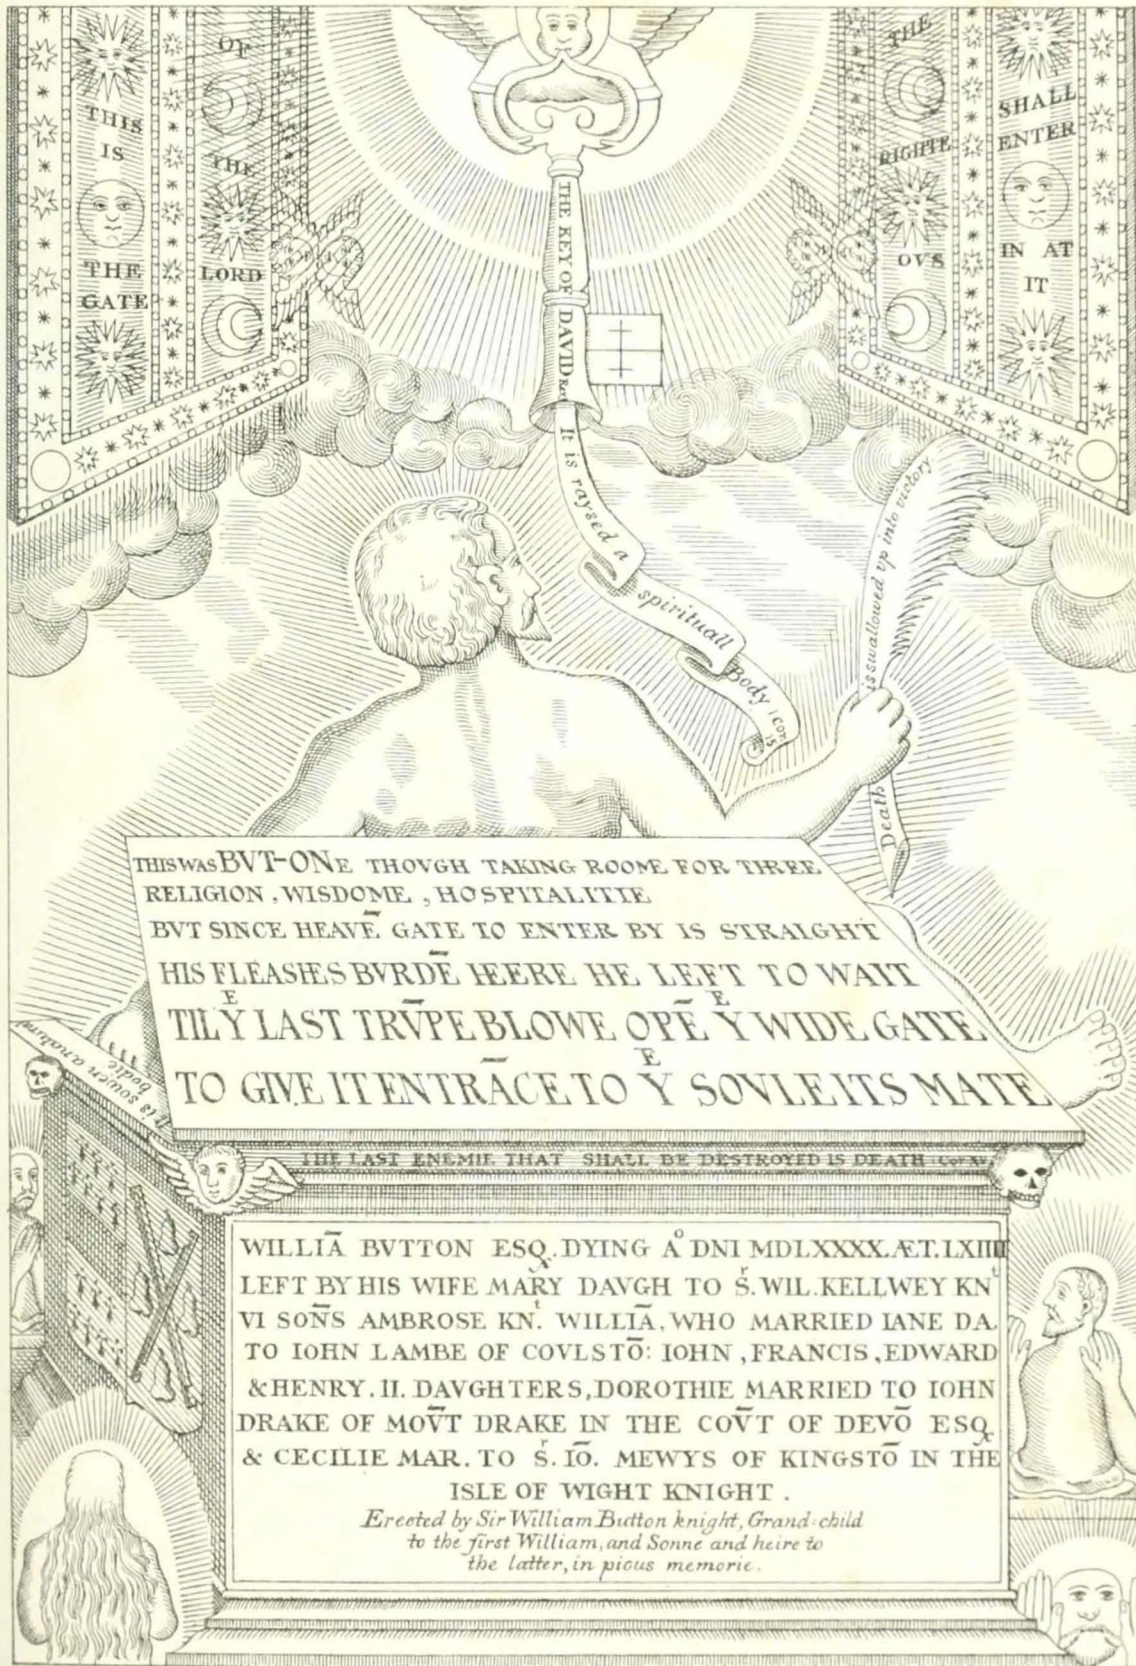 THIS
IS
THE
GATE
OF
THE
LORD
THE
RIGHTE
OVS
SHALL
ENTER
IN AT
IT
THE KEY OF DAVID &c
It is raysed a spirituall Body 1 Cor. 15
Death is swallowed vp into victory.
THIS WAS BVT-ONE THOVGH TAKING ROOME FOR THREE
RELIGION, WISDOME, HOSPITALITIE
BVT SINCE HEAVĒ GATE TO ENTER BY IS STRAIGHT
HIS FLEASHES BVRDĒ HEERE HE LEFT TO WAIT
TIL Yᴱ LAST TRV̄PE BLOWE OPĒ Yᴱ WIDE GATE
TO GIVE IT ENTRĀCE TO Yᴱ SOVLE ITS MATE
It is sowen a naturall
bodie
THE LAST ENEMIE THAT SHALL BE DESTROYED IS DEATH 1 Cor XV
WILLIĀ BVTTON ESQ. DYING Aº DNI MDLXXXX. ÆT. LXIIII
LEFT BY HIS WIFE MARY DAVGH TO Sʳ. WIL. KELLWEY KNᵗ
VI SON̄S AMBROSE KNᵗ. WILLIĀ, WHO MARRIED IANE DA.
TO IOHN LAMBE OF COVLSTŌ: IOHN, FRANCIS, EDWARD
& HENRY. II. DAVGHTERS, DOROTHIE MARRIED TO IOHN
DRAKE OF MOV̄T DRAKE IN THE COV̄T OF DEVŌ ESQ
& CECILIE MAR. TO Sʳ. IŌ. MEWYS OF KINGSTŌ IN THE
ISLE OF WIGHT KNIGHT.
Erected by Sir William Button knight, Grand-child
to the first William, and Sonne and heire to
the latter, in pious memorie.